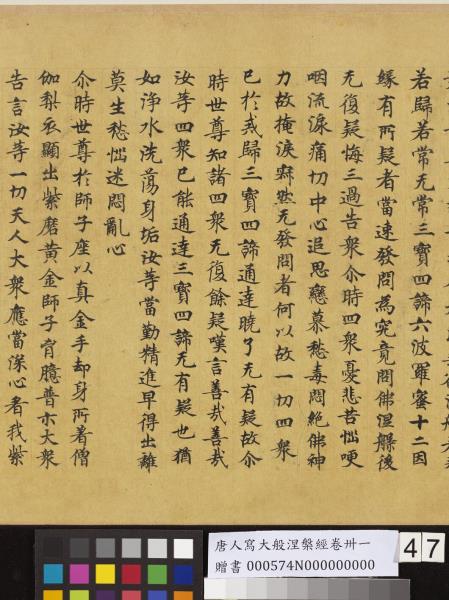 若歸若常无常三寶四諦六波羅蜜十二因
緣有所疑者當速發問為究竟問佛涅槃後
无復疑悔三過告衆尒時四衆憂悲苦惱哽
咽流淚痛切中心追思戀慕愁毒悶絕佛神
力故掩淚寂然无發問者何以故一切四衆
已於戒歸三寶四諦通達曉了无有疑故尒
時世尊知諸四衆无復餘疑嘆言善哉善哉
汝等四衆已能通達三寶四諦无有疑也猶
如淨水洗蕩身垢汝等當勤精進早得出離
莫生愁惱迷悶亂心
尒時世尊於師子座以真金手却身所著僧
伽梨衣顯出紫磨黃金師子胷臆普示大衆
告言汝等一切天人大衆應當深心看我紫
唐人寫大般涅槃經卷卅一
贈書 000574N000000000
47